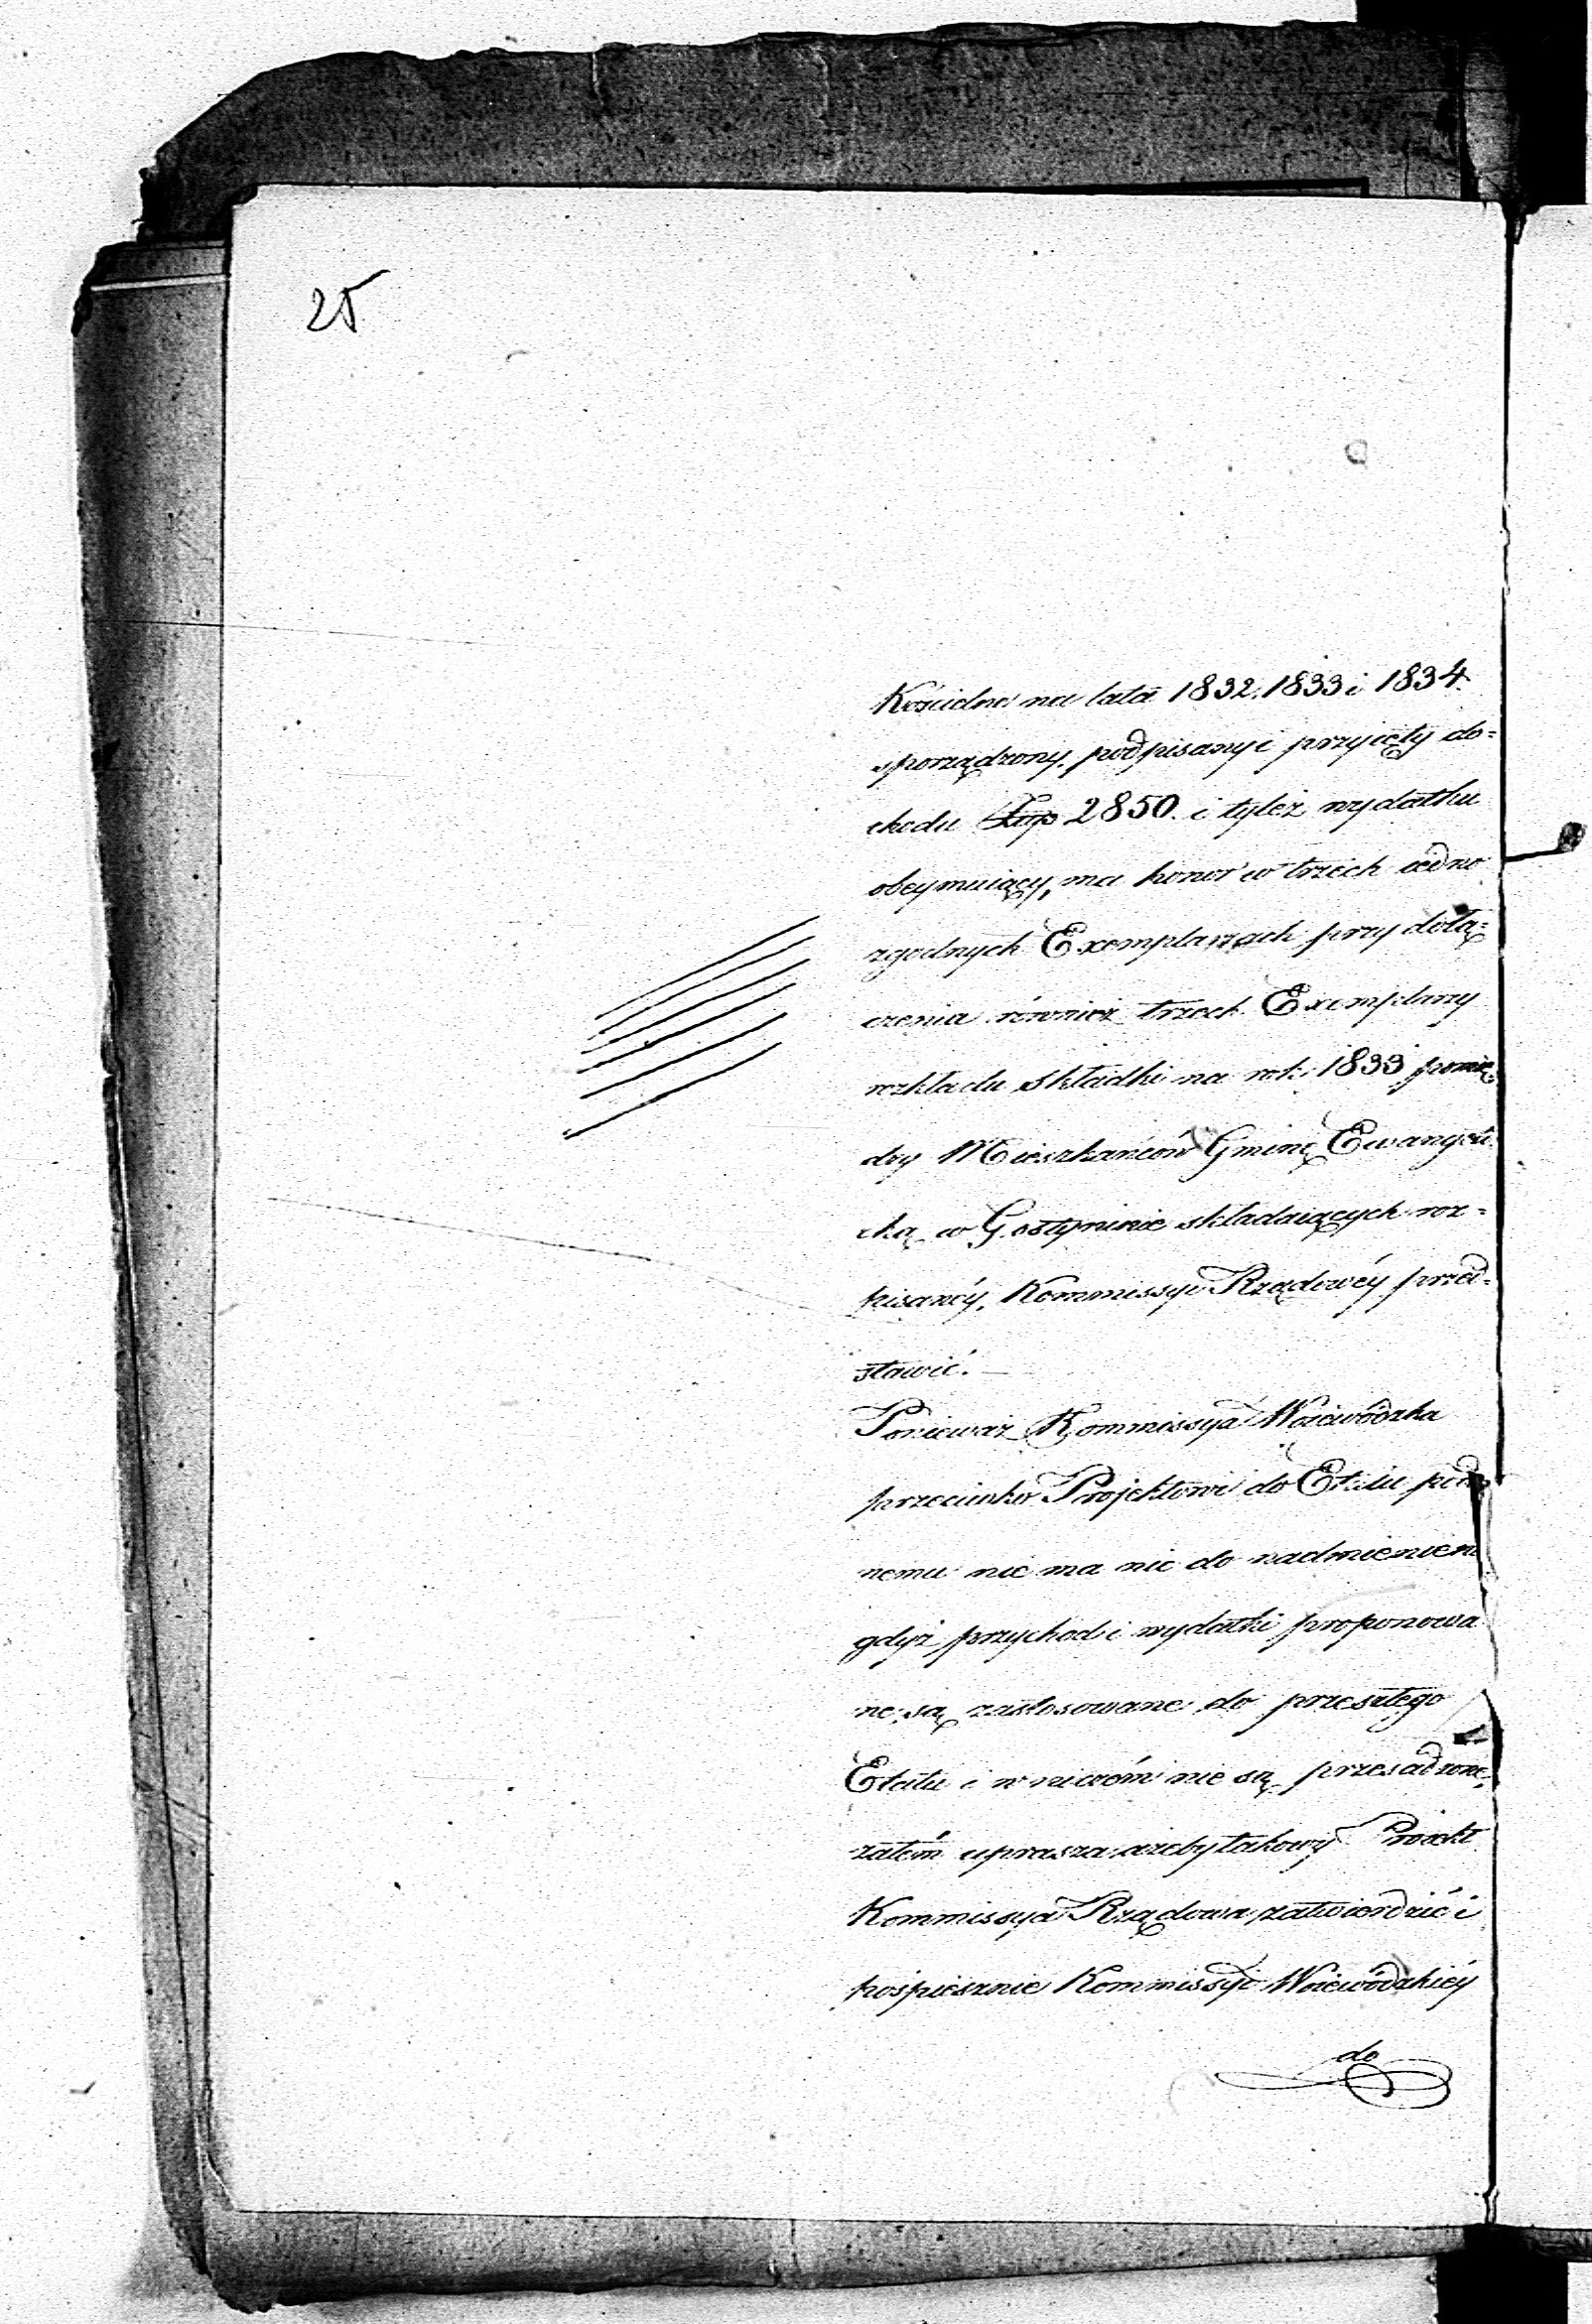 25
Kościelne na lata 1832. 1833 i 1834.
sporządzony, podpisany i przyięty do-
chodu Złp 2850. i tyleż wydatku
obeymuiący, ma honor w trzech iedno
zgodnych Exemplarzach przy dołą-
czeniu również trzech Exemplarzy
rozkładu składki na rok 1833 pomię
dzy Mieszkańców Gminę Ewangeli
cką w Gostyninie składaiących roz-
pisanéy, Kommissyi Rządowéy przed-
stawić. —
Ponieważ Kommissya Woiewódzka
przeciwko Projektowi do Etatu
nemu nie ma nic do nadmienien
gdyż przychod i wydatki proponowa
ne są zastosowane do przeszłego
Etatu i w niczém nie są przesadzone,
zatém uprasza ażeby takowy Proiekt
Kommissya Rządowa zatwierdzić i
pośpiesznie Kommissyi Woiewódzkiéy
do